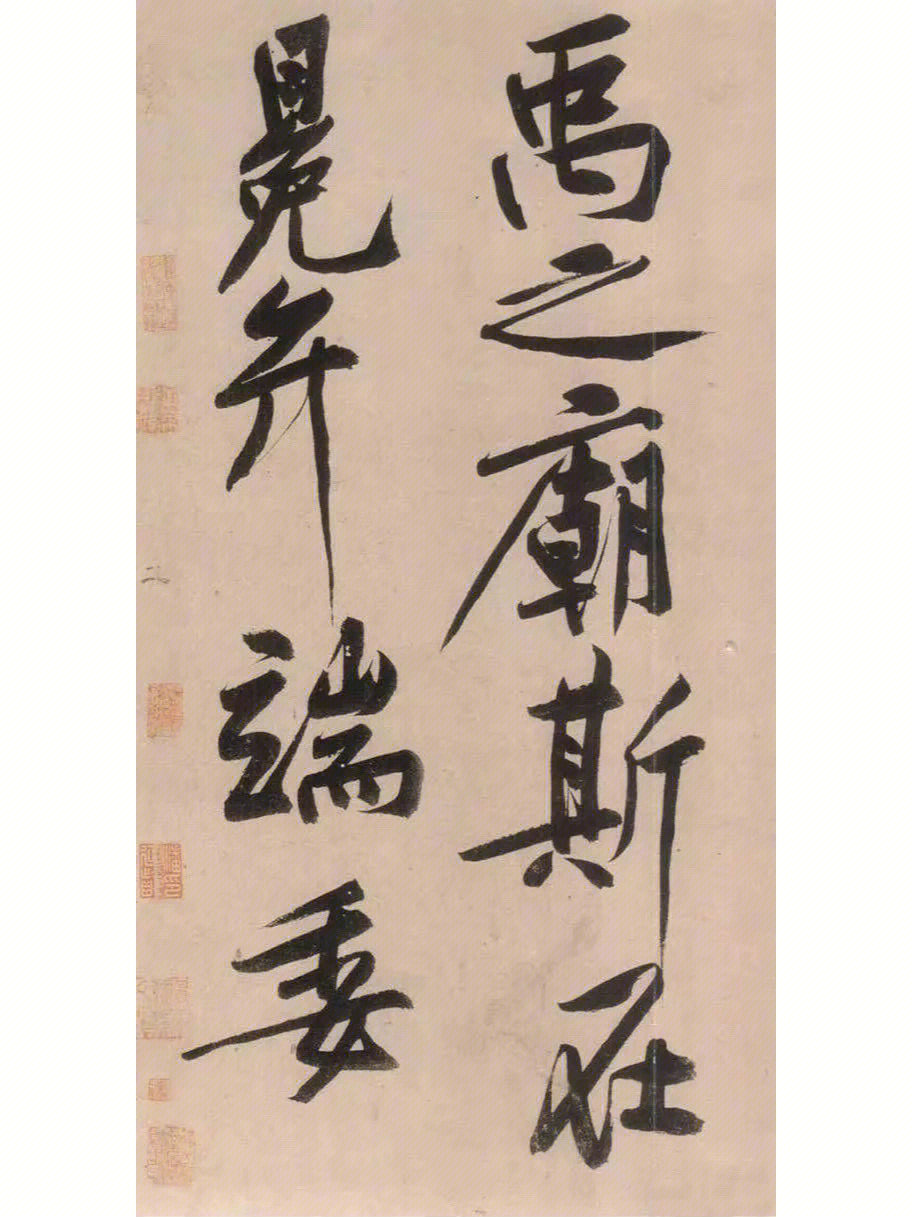 禹之廟斯在
冕弁端委